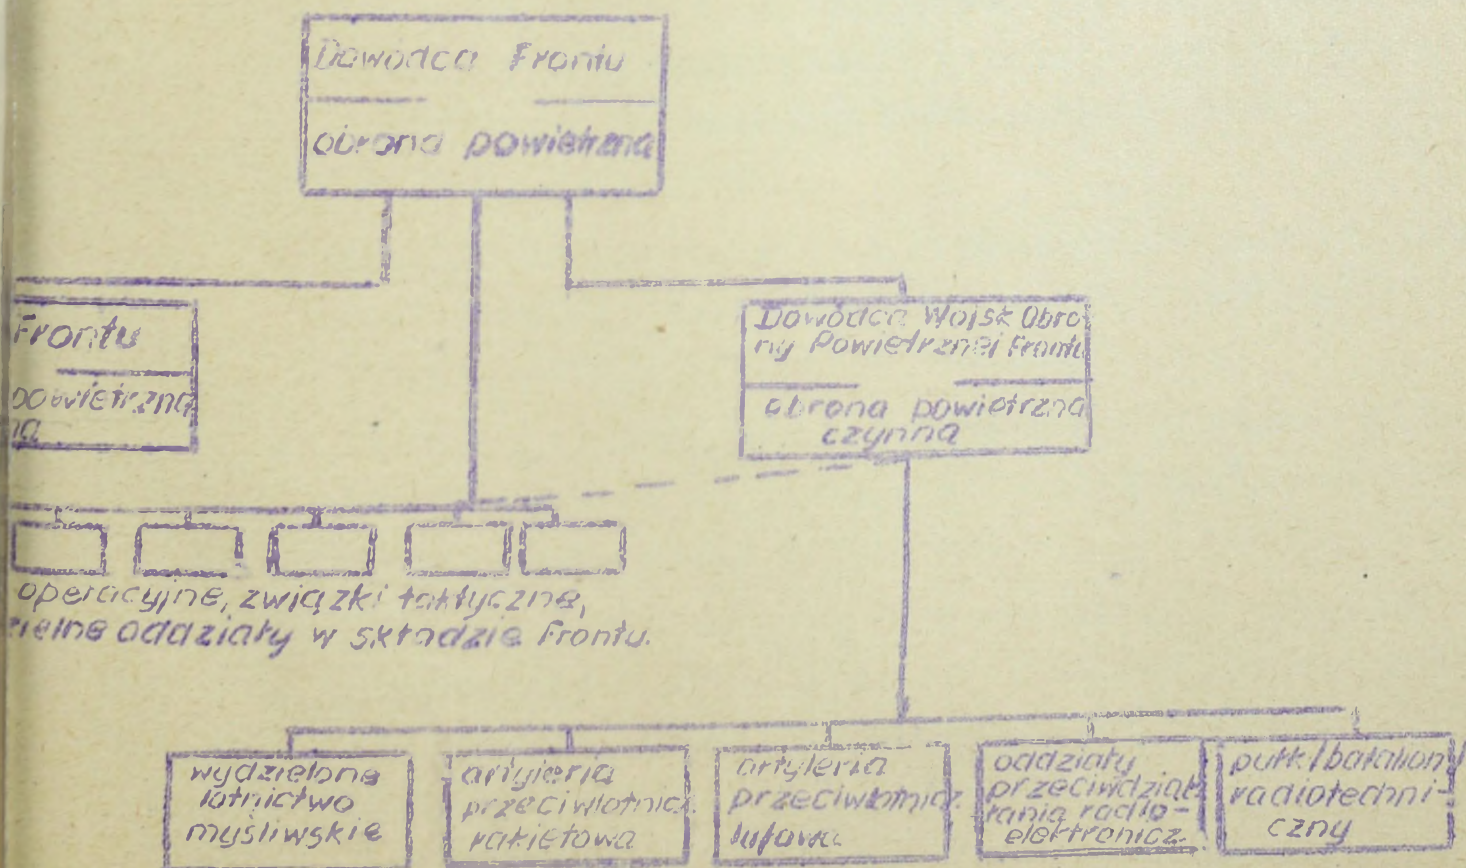 Dowódca Frontu
obrona powietrzna
Frontu
powietrzna
na
Dowódca Wojsk Obro-
ny Powietrznej Frontu
obrona powietrzna
czynna
operacyjne, związki taktyczne,
zielne oddziały w składzie Frontu.
wydzielone
lotnictwo
myśliwskie
artyleria
przeciwlotnicz.
rakietowa
artyleria
przeciwlotnicz.
lufowa
oddziały
przeciwdział-
łania radio-
elektronicz.
pułk/batalion/
radiotechni-
czny